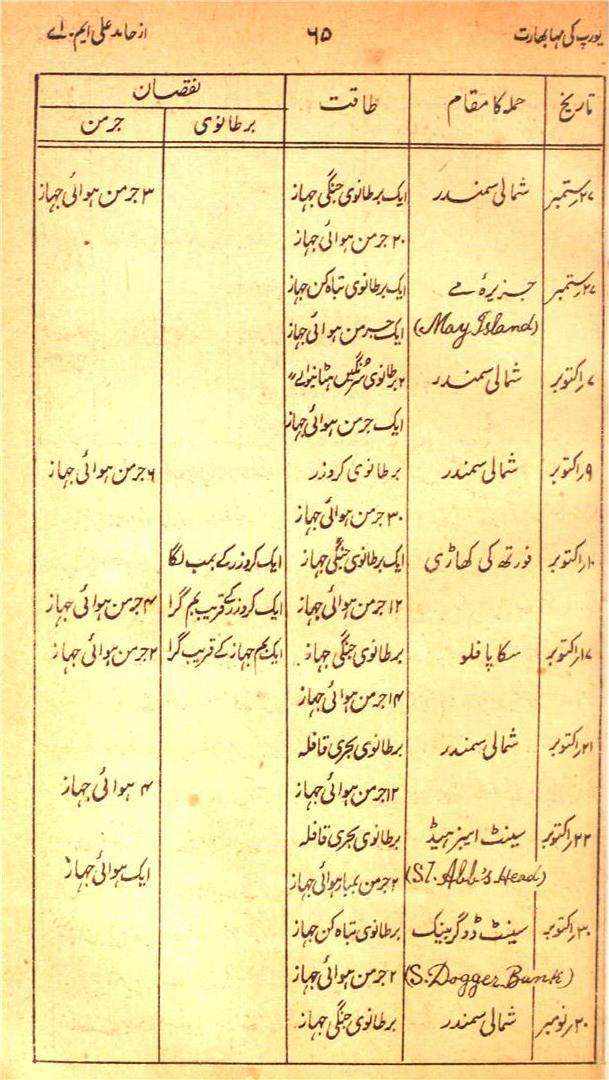 یورپ کی مہابھارت ۶۵ از حامد علی ایم۔اے
تاریخ حملہ کا مقام طاقت نقصان
برطانوی جرمن
۲۷ ستمبر شمالی سمندر ایک برطانوی جنگی جہاز ۳ جرمن ہوائی جہاز
۲۰ جرمن ہوائی جہاز
۲۷ ستمبر جزیرۂ مے ایک برطانوی تباہ کن جہاز
(May Island) ایک جرمن ہوائی جہاز
۷ اکتوبر شمالی سمندر ۲ برطانوی سرنگیں ہٹانیوالے〃
ایک جرمن ہوائی جہاز
۹ اکتوبر شمالی سمندر برطانوی کروزر ۶ جرمن ہوائی جہاز
۳۰ جرمن ہوائی جہاز
۱۰ اکتوبر فورتھ کی کھاڑی ایک برطانوی جنگی جہاز ایک کروزر کے بمب لگا
۱۲ جرمن ہوائی جہاز ایک کروزر کے قریب بم گرا ۴ جرمن ہوائی جہاز
۱۷ اکتوبر سکاپا فلو برطانوی جنگی جہاز ایک بم جہاز کے قریب گرا ۲ جرمن ہوائی جہاز
۱۴ جرمن ہوائی جہاز
۲۱ اکتوبر شمالی سمندر برطانوی بحری قافلہ
۱۲ جرمن ہوائی جہاز ۴ ہوائی جہاز
۲۲ اکتوبر سینٹ ایبز ہیڈ برطانوی بحری قافلہ
(St. Abb's Head) ۲ جرمن بمبار ہوائی جہاز ایک ہوائی جہاز
۳۰ اکتوبر سینٹ ڈوگر بینک برطانوی تباہ کن جہاز
(S. Dogger Bunk) ۲ جرمن ہوائی جہاز
۲۰ نومبر شمالی سمندر برطانوی جنگی جہاز